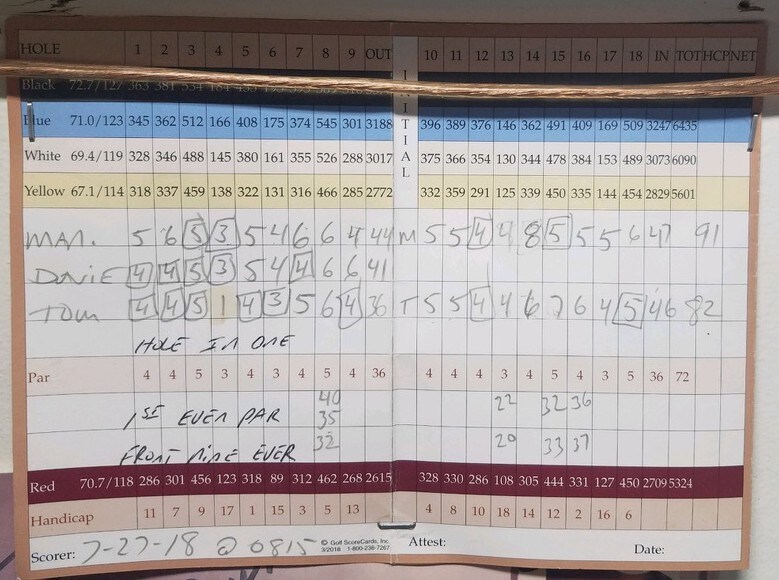 HOLE 1 2 3 4 5 6 7 8 9 OUT INITIAL 10 11 12 13 14 15 16 17 18 IN TOT HCP NET
Black 72.7/127 363 381 534
Blue 71.0/123 345 362 512 166 408 175 374 545 301 3188 396 389 376 146 362 491 409 169 509 3247 6435
White 69.4/119 328 346 488 145 380 161 355 526 288 3017 375 366 354 130 344 478 384 153 489 3073 6090
Yellow 67.1/114 318 337 459 138 322 131 316 466 285 2772 332 359 291 125 339 450 335 144 454 2829 5601
MAN. 5 6 5 3 5 4 6 6 4 44 M 5 5 4 4 8 5 5 5 6 47 91
DONIE 4 4 5 3 5 4 4 6 6 41
TOM 4 4 5 1 4 3 5 6 4 36 T 5 5 4 4 6 7 6 4 5 46 82
HOLE IN ONE
Par 4 4 5 3 4 3 4 5 4 36 4 4 4 3 4 5 4 3 5 36 72
40 22 32 36
1ST EVER PAR 35
FRONT NINE EVER 32 20 33 37
Red 70.7/118 286 301 456 123 318 89 312 462 268 2615 328 330 286 108 305 444 331 127 450 2709 5324
Handicap 11 7 9 17 1 15 3 5 13 4 8 10 18 14 12 2 16 6
Scorer: 7-27-18 @ 0815 © Golf ScoreCards, Inc. 3/2018 1-800-238-7267 Attest: Date: